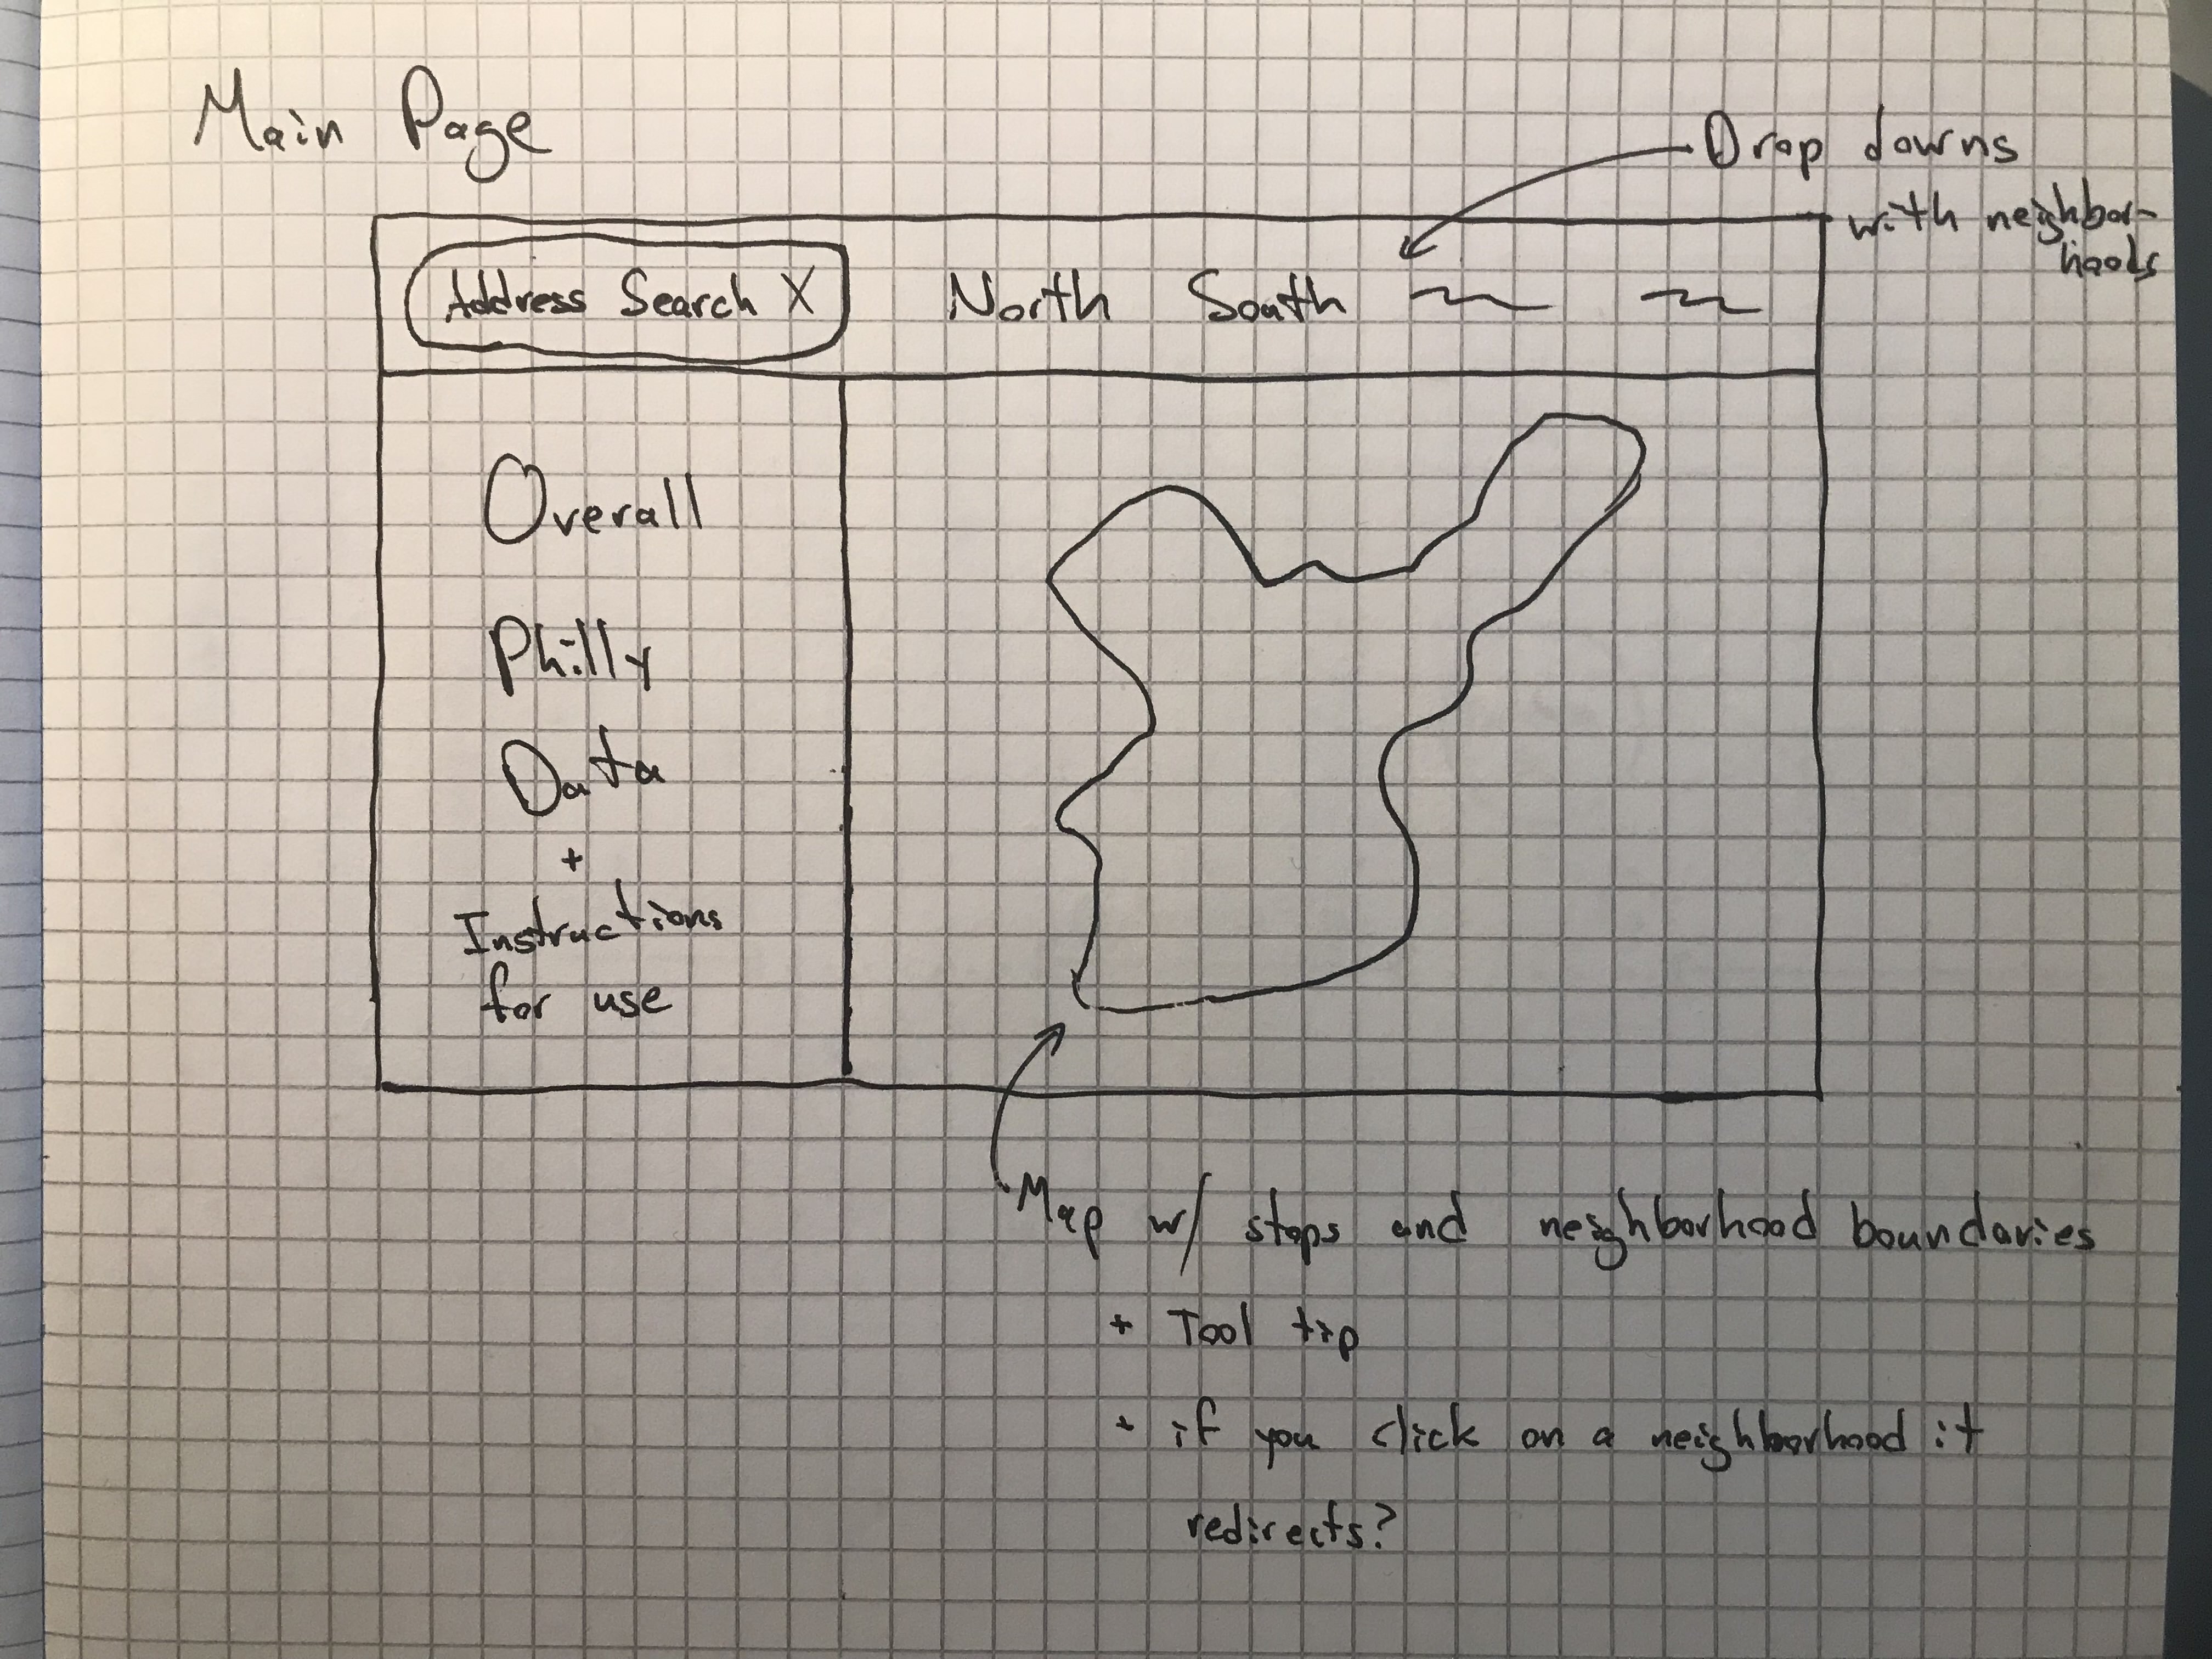 Main Page
Drop downs
with neighbor-
hoods
Address Search X North South
Overall
Philly
Data
+
Instructions
for use
Map w/ stops and neighborhood boundaries
+ Tool tip
+ if you click on a neighborhood it
redirects?